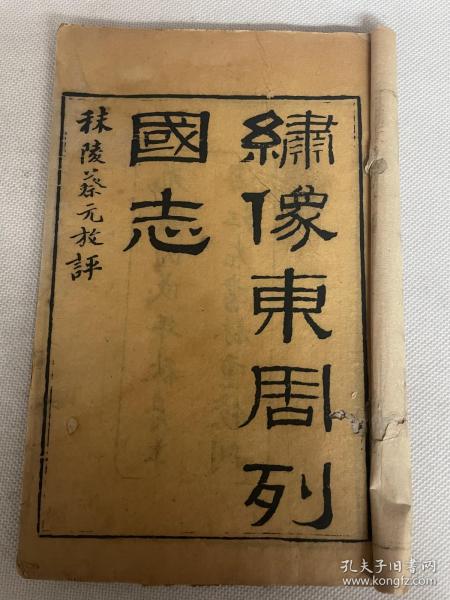 繡像東周列
國志
秣陵蔡元放評
孔夫子旧书网
www.kongfz.com